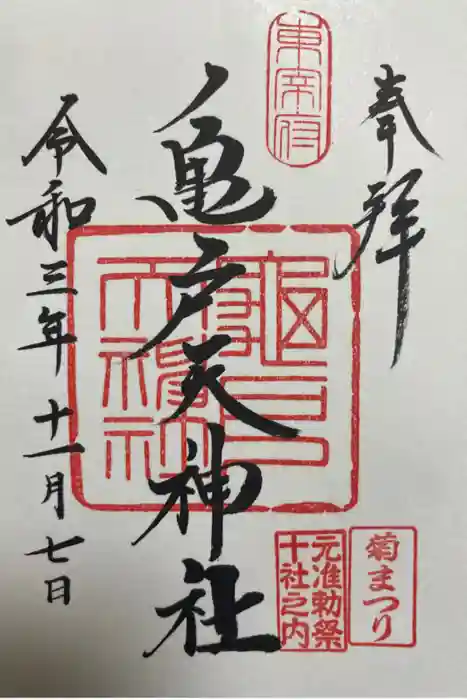 奉拝
東宰府
亀戸天神社
元准勅祭
十社之内
菊まつり
令和三年十一月七日